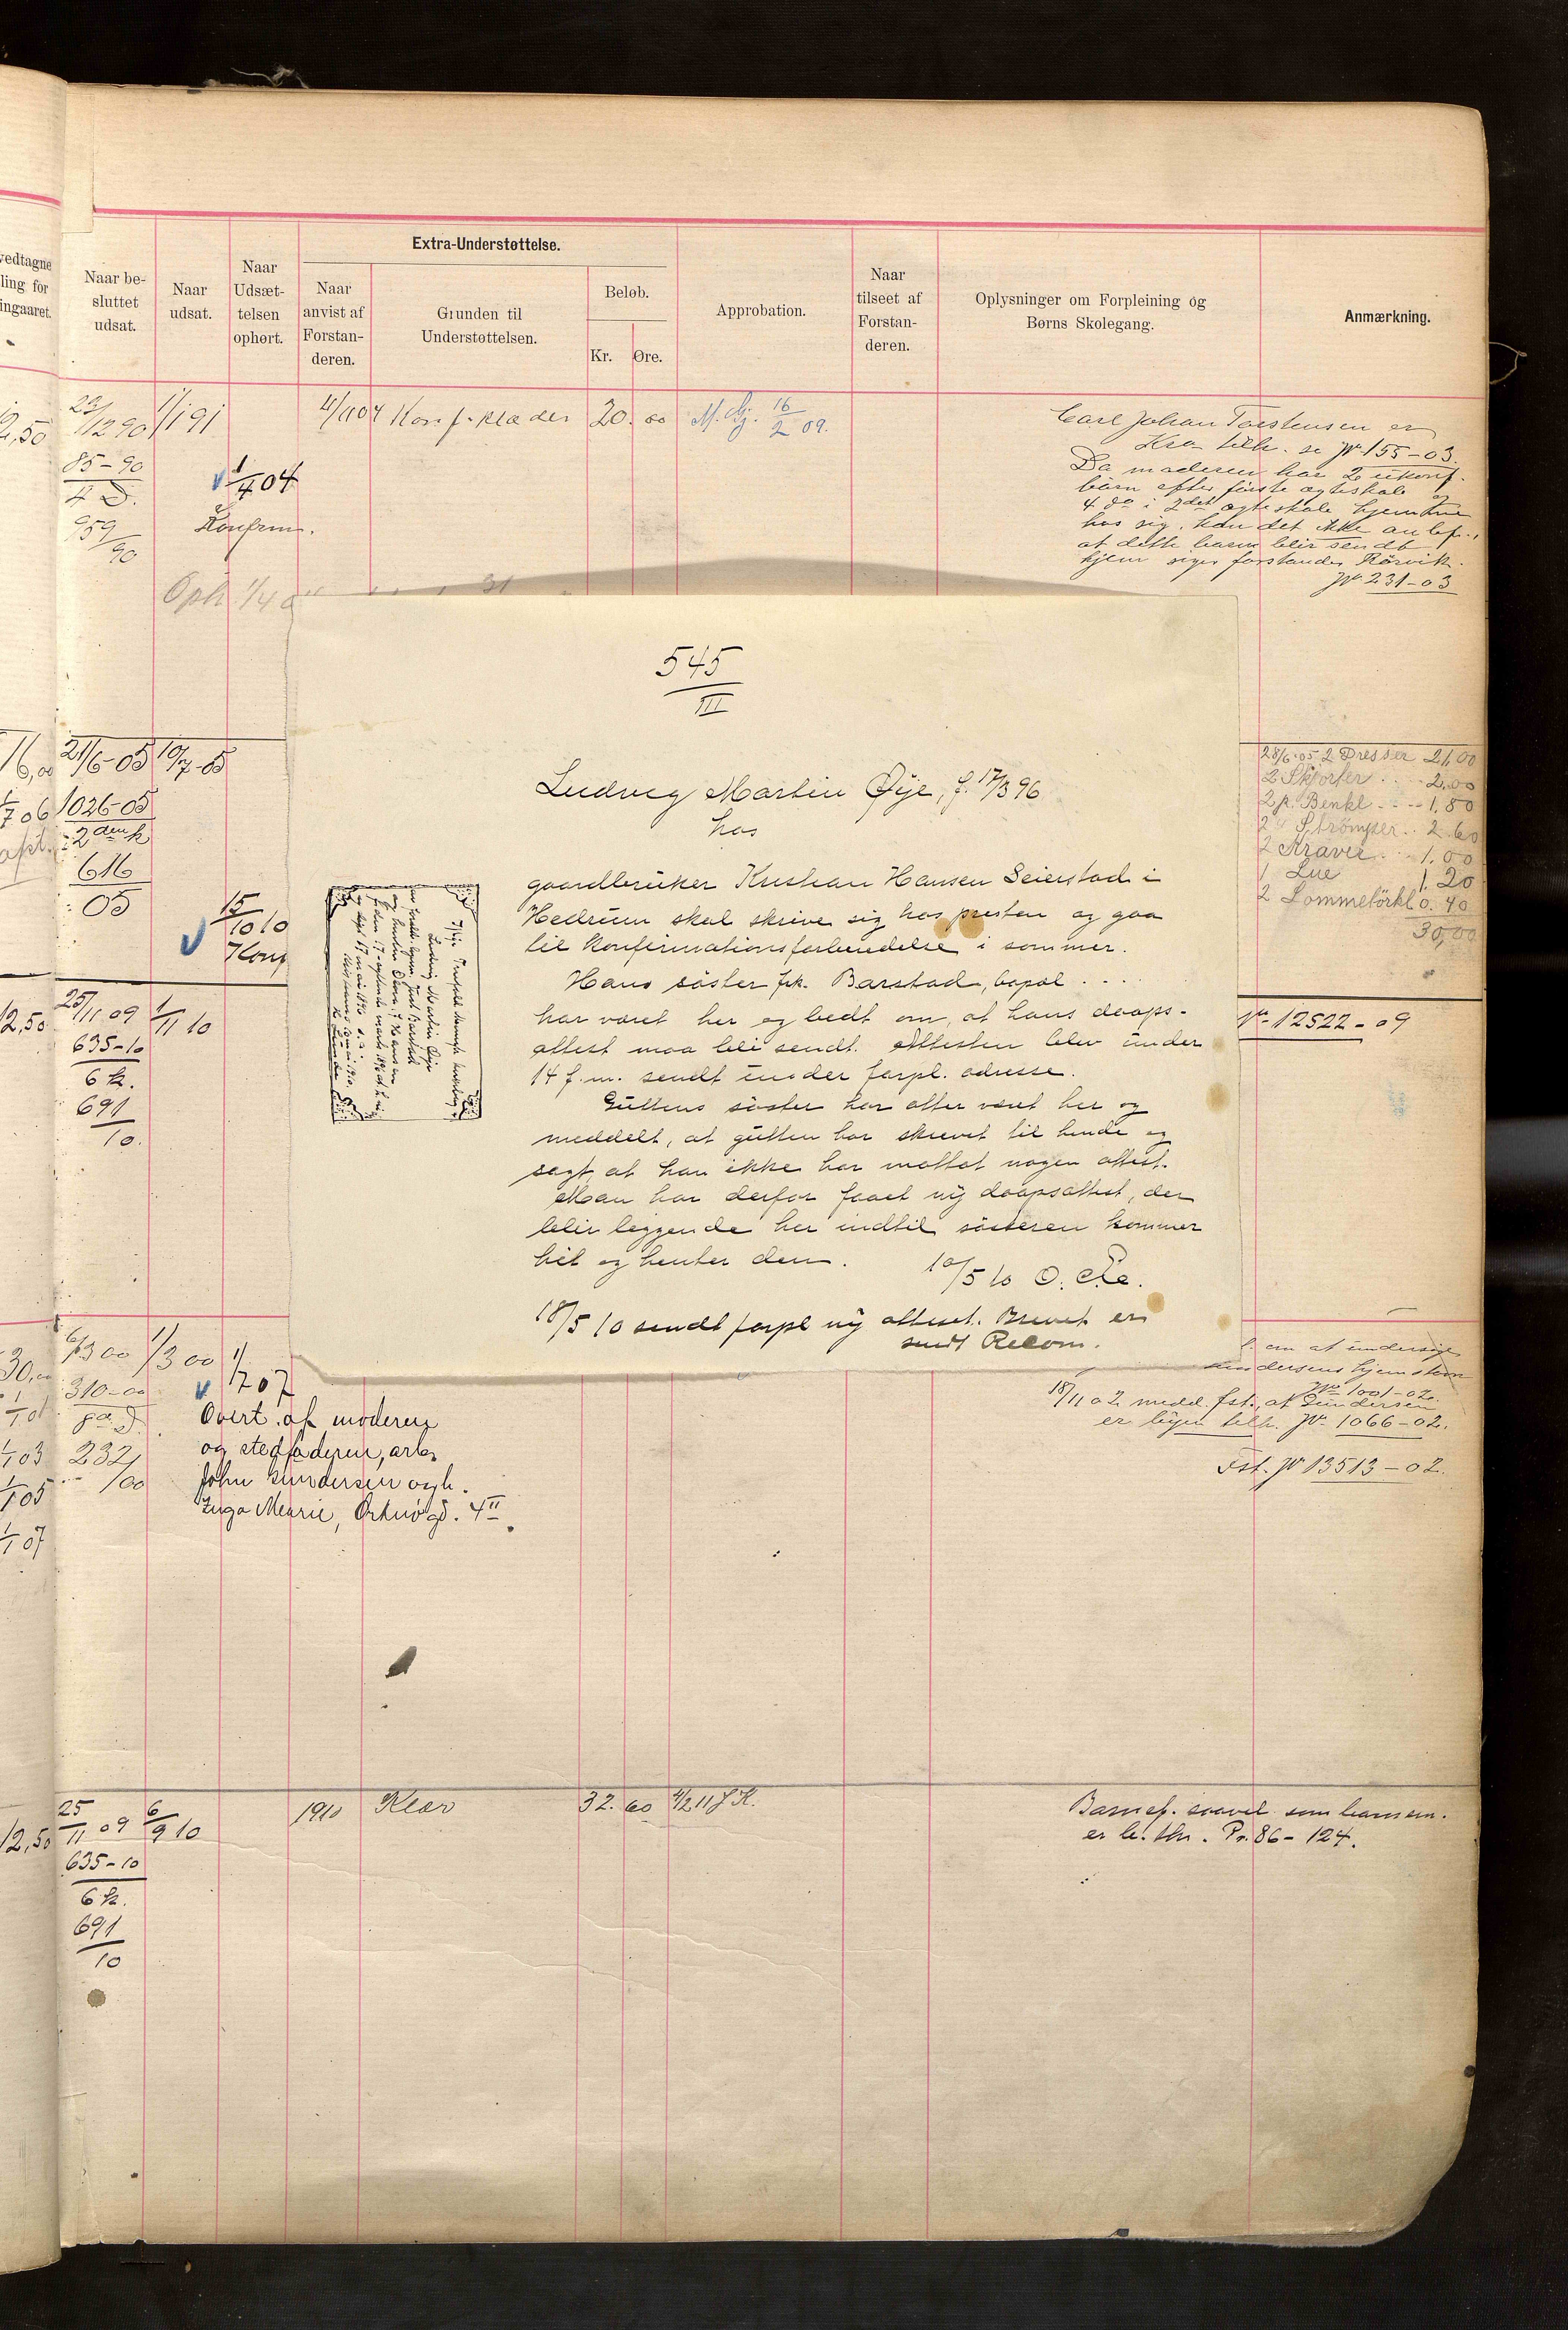 vedtagne
ling for
ingaaret.
Naar be-
sluttet
udsat.
Naar
udsat.
Naar
Udsæt-
telsen
ophørt.
Extra-Understøttelse.
Naar
anvist af
Forstan-
deren.
Grunden til
Understøttelsen.
Beløb.
Kr. Øre.
Approbation.
Naar
tilseet af
Forstan-
deren.
Oplysninger om Forpleining og
Børns Skolegang.
Anmærkning.
2,50 1/1 91
4/1104 Konf. klæder 20. 00 16/2 09.
85-90
1/4 04
959/90
Konfirm.
Carl Johan Torstensen er
Kra tilh. se Jr. 155-03.
Da moderen har 2 ukonf.
børn efter første egteskab og
4 do i 2det egteskab hjemme
hos sig, kan det ikke anbef.,
at dette barn blir sendt
hjem siger forstander Rörvik.
Jr. 231-03
Oph 1/4
545
III
Ludvig Martin Øye, f. 17/3 96
hos
gaardbruker Kristian Hansen Seierstad i
Hedrum skal skrive sig hos presten og gaa
til Konfirmationsforberedelse i sommer.
Hans søster frk. Barstad, bopæl . . . .
har været her og bedt om, at hans daaps-
attest maa bli sendt. Attesten blev under
14 f.m. sendt under forpl. adresse.
Guttens søster har atter været her og
meddelt, at gutten har skrevet til hende og
sagt, at han ikke har mottat nogen attest.
Man har derfor faaet ny daapsattest, der
blir liggende her indtil søsteren kommer
hit og henter den.
10/5 10
18/5 10 sendt forpl ny attest. Brevet er
sendt Recom.
Ludvig Martin Øye
16,00 21/6-05 10/7-05
1026-05
2den k
616
05
15/10 10
Konf
28/6-05 2 Dresser 21,00
2 Skjorter . . 2,00
2 p. Benkl . . . 1,80
2 " Strømper . . 2.60
2 Kraver . . 1.00
1 Lue 1. 20
2 Lommetörkl 0. 40
30,00
12,50 25/11 09 1/11 10
635-10
6 k.
691
10.
Jr. 12522-09
30,00 6/3 00 1/3 00 1/7 07
310-00
232
/00
Overt. af moderen
og stedfaderen, arb.
John Gundersen og h.
Inga Marie, Orknögd. 4 II.
. om at undersøge
Gundersens hjemstavn
Jr. 1001-02.
18/11 02 medd. fst., at Gundersen
er byen tilh. Jr. 1066-02.
Fst. Jr 13513-02.
12,50 25/11 09 6/9 10 1910 Klær 32. 60 4/2 11 J K.
635-10
6 k.
691
10
Barnef. saavel som barnem.
er b. thr. Pr. 86-124.